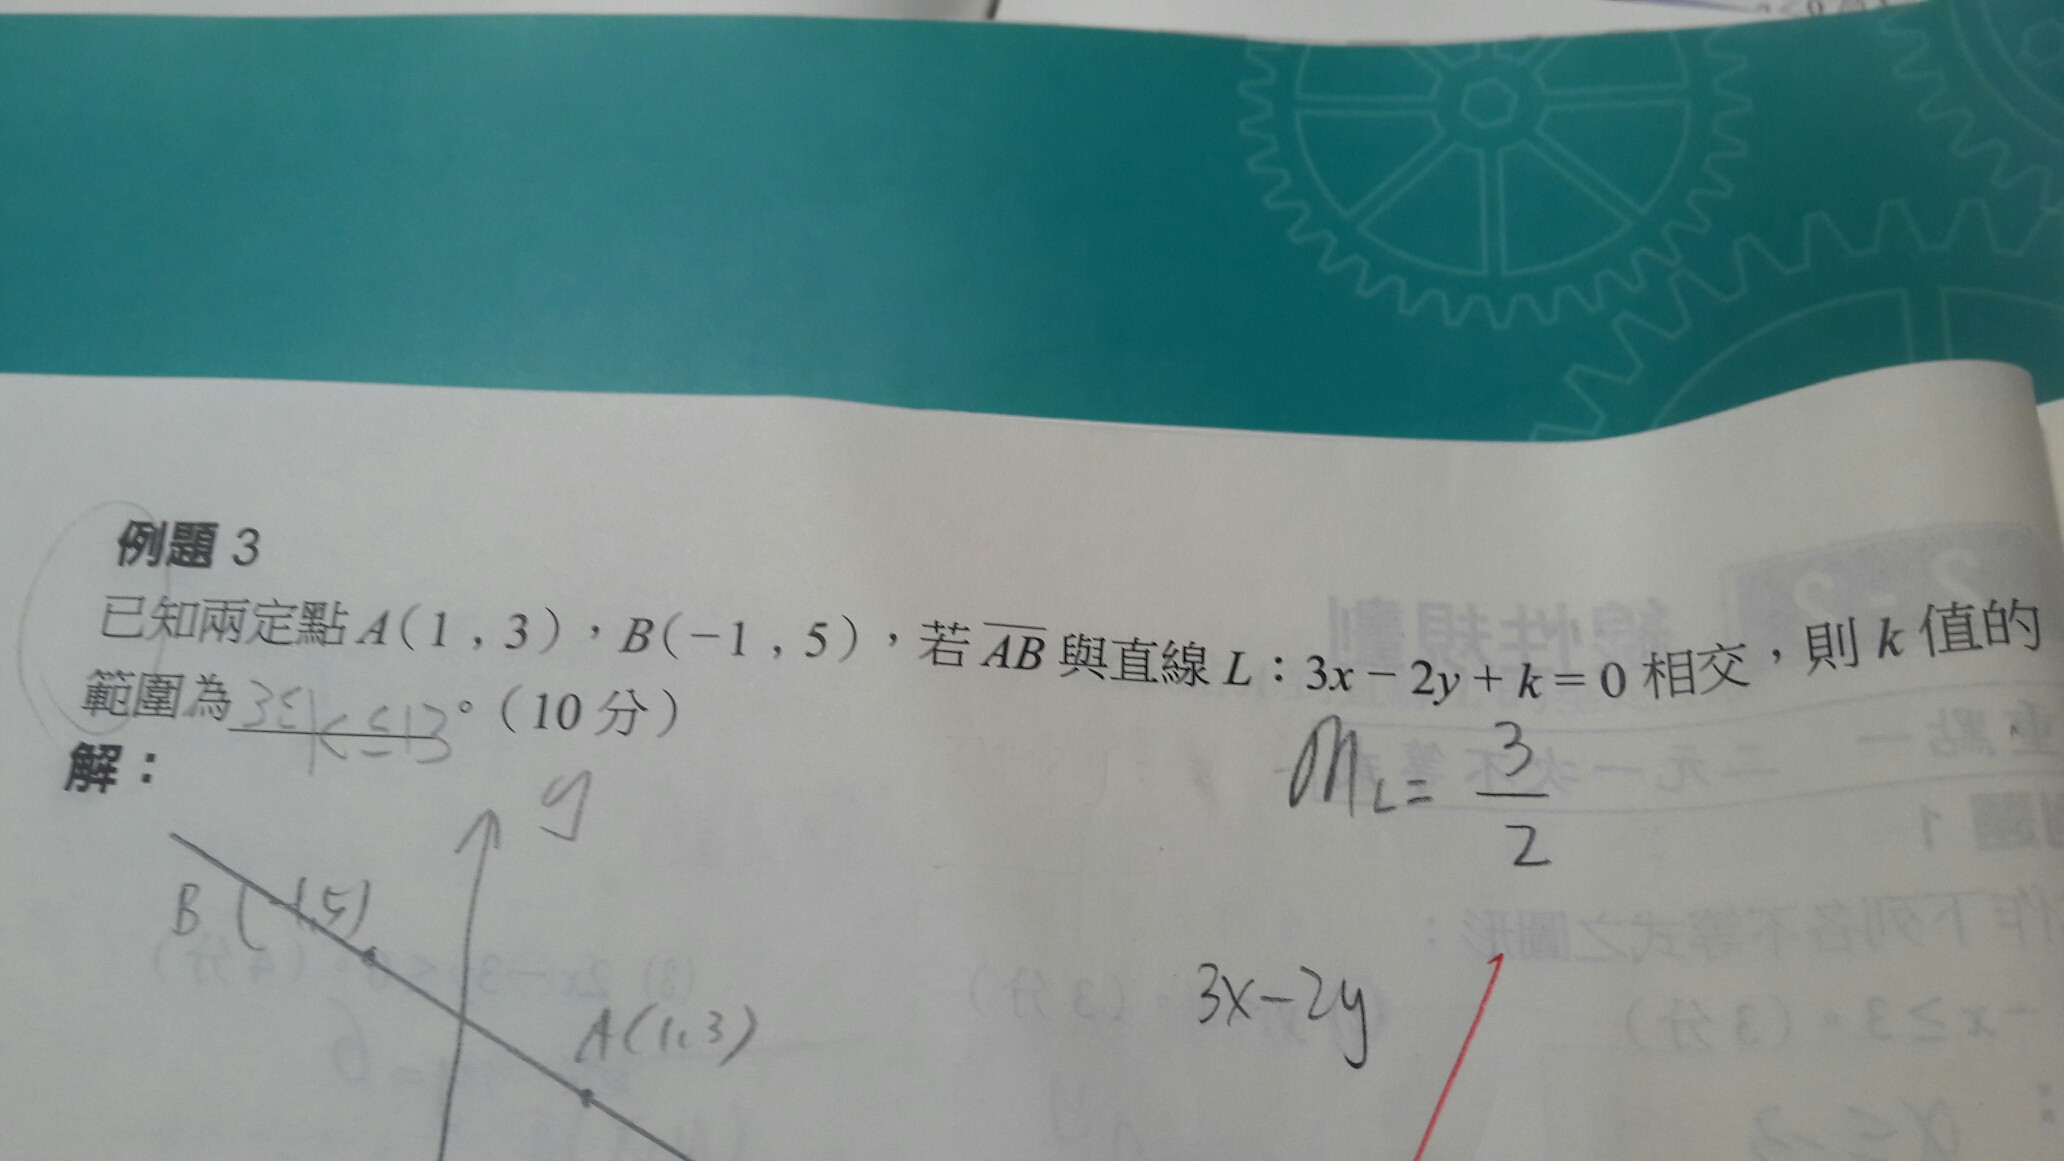 例題 3
已知兩定點 A(1 , 3)，B(−1 , 5)，若 AB 與直線 L：3x − 2y + k = 0 相交，則 k 值的
範圍為 3≤k≤13。(10 分)
解：
y
mL = 3/2
B (-1,5)
A(1,3)
3x-2y